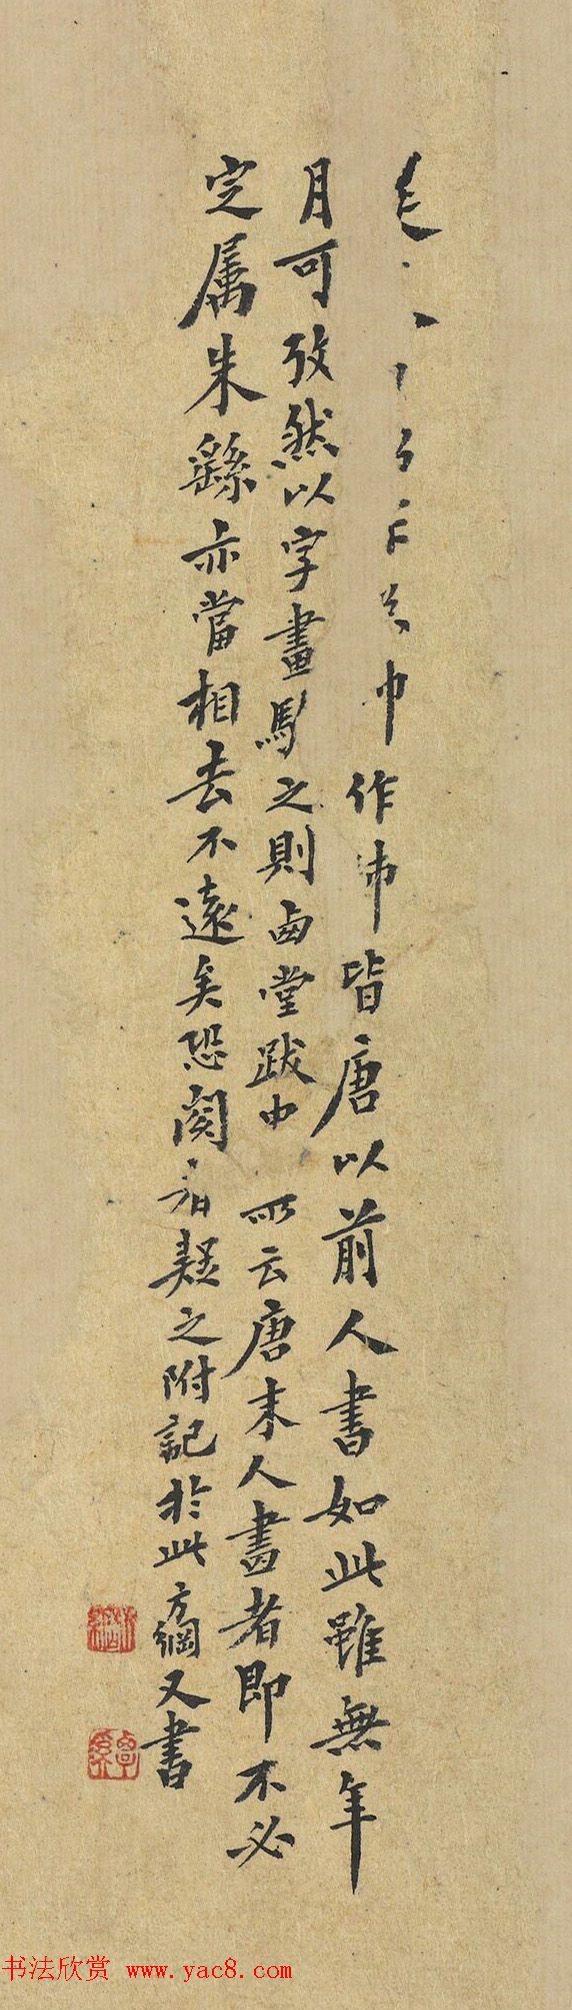 巾作帀皆唐以前人書如此雖無年
月可攷然以字畫馭之則卤堂跋中所云唐末人書者即不必
定属朱繇亦當相去不遠矣恐閱者疑之附記於此方綱又書
书法欣赏 www.yac8.com